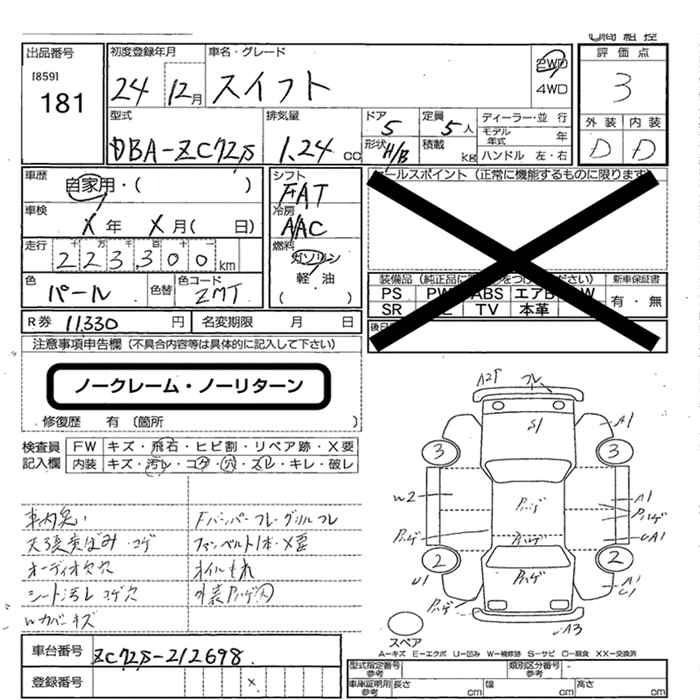 出品番号
[859]
181
初度登録年月
24 12月
車名・グレード
スイフト
2WD
4WD
評価点
3
外装 内装
D D
型式
DBA-ZC72S
排気量
1.24 cc
ドア
5
形状
H/B
定員
5 人
積載
kg
ディーラー・並行
モデル年式 年
ハンドル 左・右
車歴
自家用・( )
車検
X 年 X 月( 日)
走行
十 万 千 百 十 一
223,300 km
色
パール
色替
色コード
ZMT
シフト
FAT
冷房
AAC
燃料
ガソリン
軽・油
( )
セールスポイント (正常に機能するものに限ります)
PS
ABS
エアB
SR
TV
本革
新車保証書
有・無
R券 11330 円
名変期限 月 日
注意事項申告欄 (不具合内容等は具体的に記入して下さい)
ノークレーム・ノーリターン
修復歴 有 〔箇所
検査員記入欄
FW キズ・飛石・ヒビ割・リペア跡・X要
内装 キズ・汚レ・コゲ・穴・スレ・キレ・破レ
車内臭い
オーディオ欠欠
シート汚レ コゲ穴
Wカバーキズ
Fバンパーフレ・グリルフレ
ファンベルト1本・X要
オイルもれ
A2P フレ
S1
A1
3 3
W2
Pハゲ
Pハゲ
A1
Pハゲ
Pハゲ
UA1
2 2
U1
Pハゲ
A1
Pハゲ
A3
スペア
A-キズ E-エクボ U-凹み W-補修跡 S-サビ C-腐食 XX-交換済
車台番号 ZC72S-212698
登録番号 x
型式指定番号 参考
類別区分番号 参考
車庫証明用 参考
長さ cm
幅 cm
高さ cm